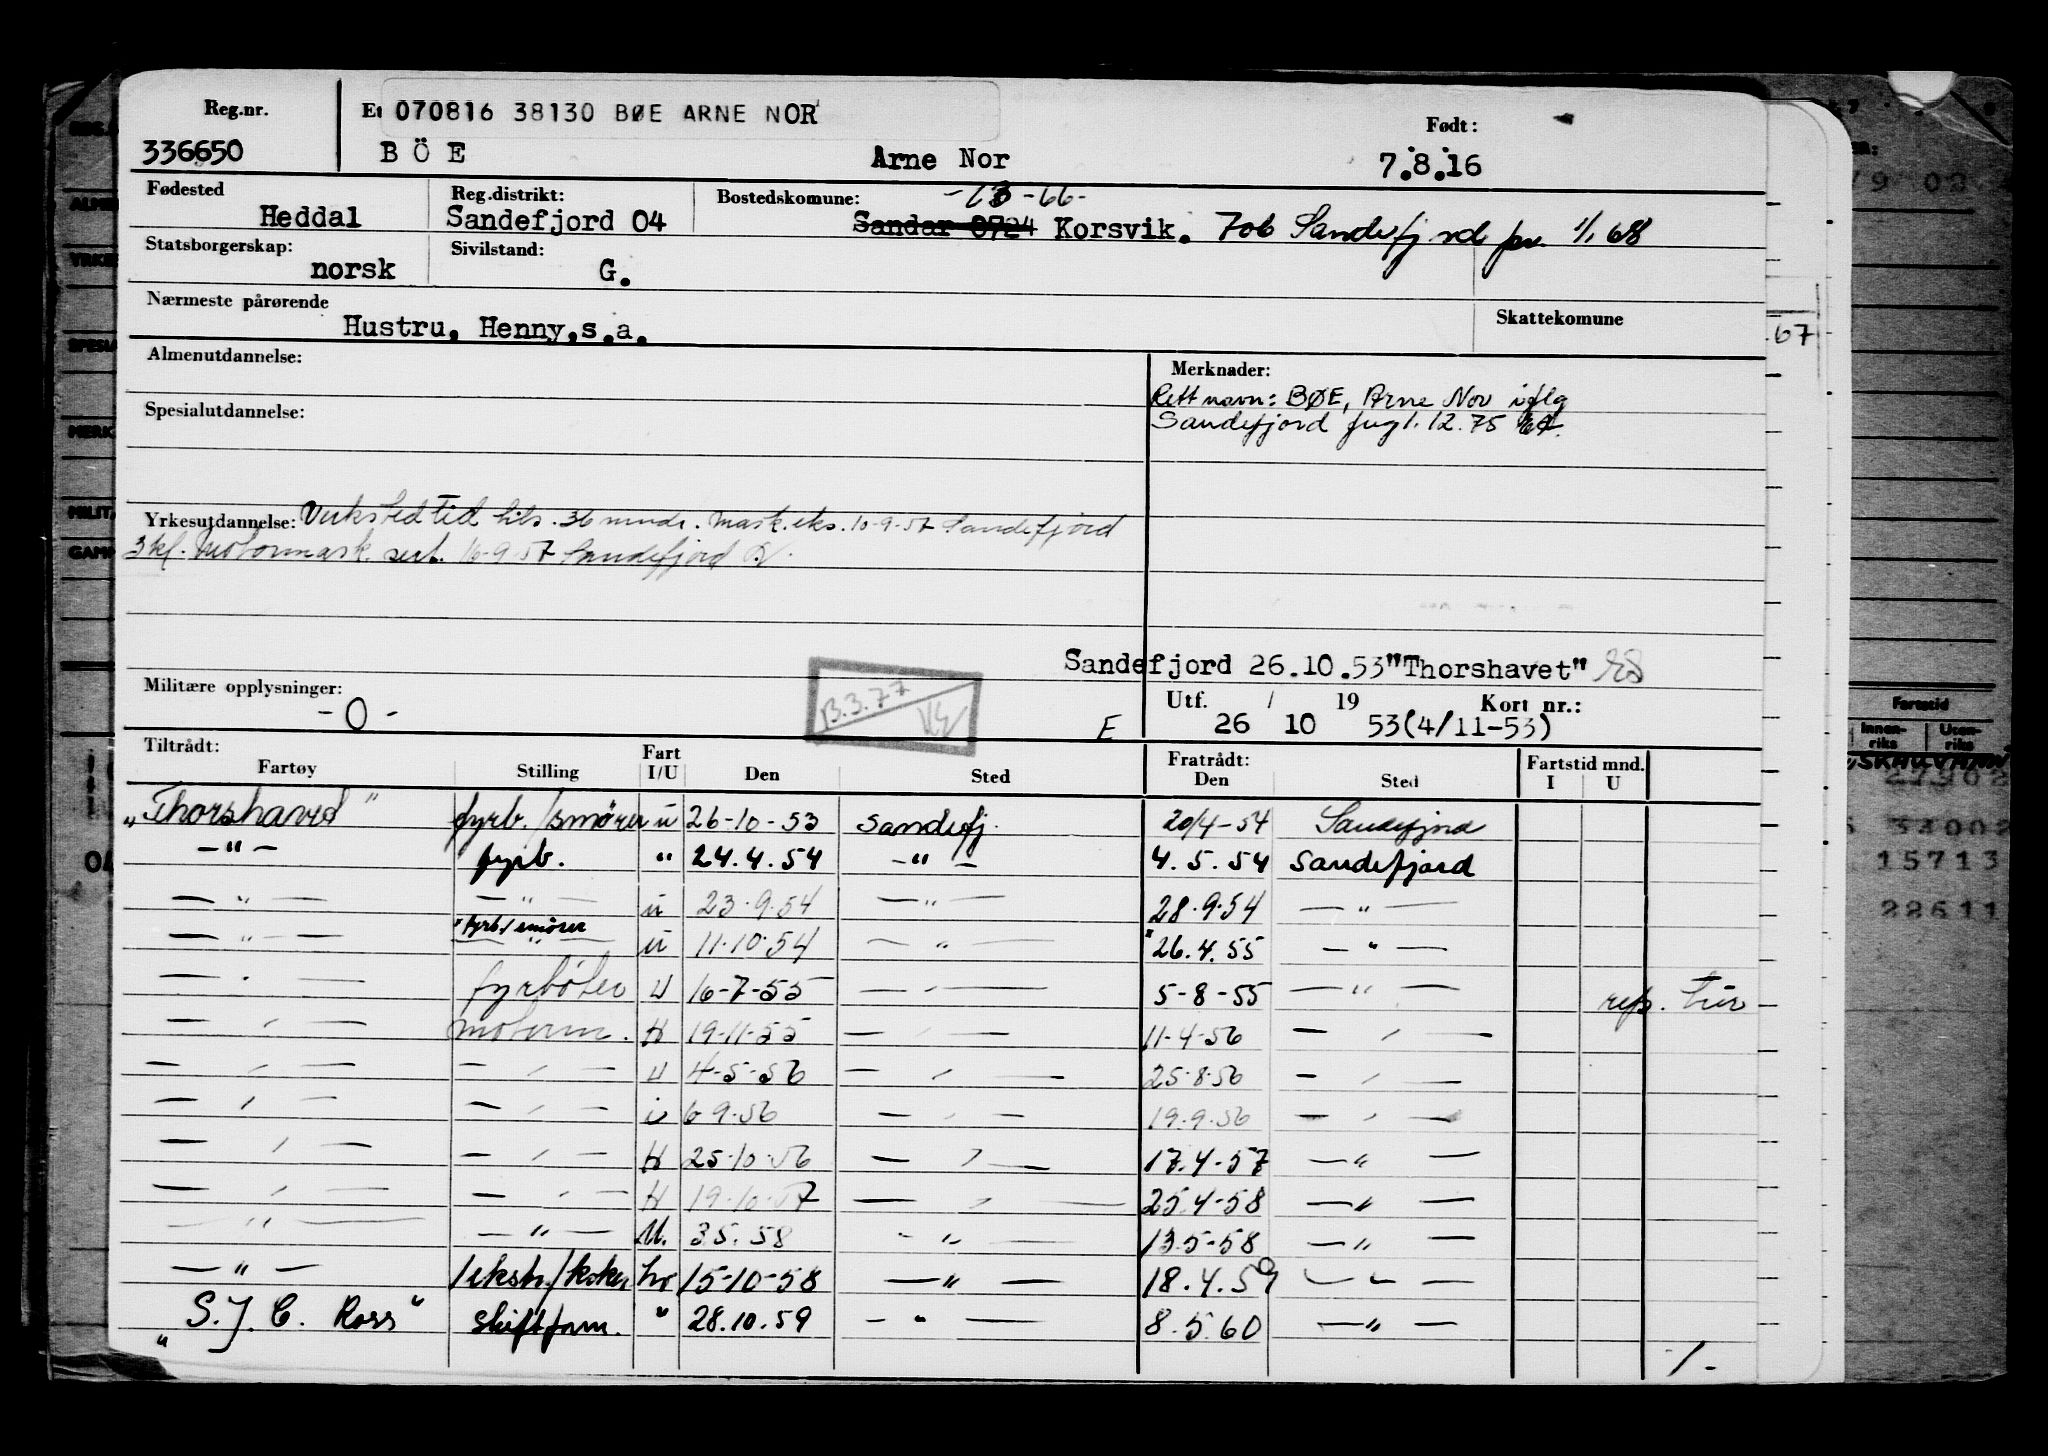 Reg.nr. Et 070816 38130 BØE ARNE NOR Født:
336650 BÖE Arne Nor 7.8.16
Fødested Reg.distrikt: Bostedskomune: -66-
Heddal Sandefjord 04 Sandar 0724 Korsvik. 706 Sandefjord pr. 1/1 68
Statsborgerskap: Sivilstand:
norsk G.
Nærmeste pårørende Skattekomune
Hustru, Henny,s.a. 67
Almenutdannelse: Merknader:
Rett navn: BØE, Arne Nor iflg
Spesialutdannelse: Sandefjord 12.75
Yrkesutdannelse: Verkstedtid hits. 36 mndr. Mask.eks. 10-9-57 Sandefjord
3kl. Motormask. sert. 16-9-57 Sandefjord
Sandefjord 26.10.53 "Thorshavet"
Militære opplysninger: 13.3.77 Utf. / 19 Kort nr.:
-0- E 26 10 53(4/11-53)
Tiltrådt: Fart Fratrådt: Fartstid mnd.
Fartøy Stilling I/U Den Sted Den Sted I U
"Thorshavet" fyrb./smører u 26-10-53 Sandefj. 20/4-54 Sandefjord
—"— fyrb. " 24.4.54 —"— 4.5.54 Sandefjord
—"— —"— u 23.9.54 —"— 28.9.54 —"—
—"— "fyrb./smører —"— u 11.10.54 —"— "26.4.55 —"—
—"— fyrbøter U 16-7-55 —"— 5-8-55 —"— rep. tur
—"— motorm. H 19-11-55 —"— 11-4-56 —"—
—"— —"— U 4-5-56 —"— 25.8.56 —"—
—"— —"— i 6.9.56 —"— 19.9.56 —"—
—"— —"— H 25-10-56 —"— 17.4-57 —"—
—"— —"— H 19-10-57 —"— 25.4-58 —"—
—"— —"— U. 3.5.58 —"— 13.5-58 —"—
—"— hv 15-10-58 —"— 18.4.59 —"—
"S.J.C. Ross" skiftform. " 28.10.59 —"— 8.5.60 —"—
-/-
Fartstid
Innen-riks Uten-riks
15713
22611